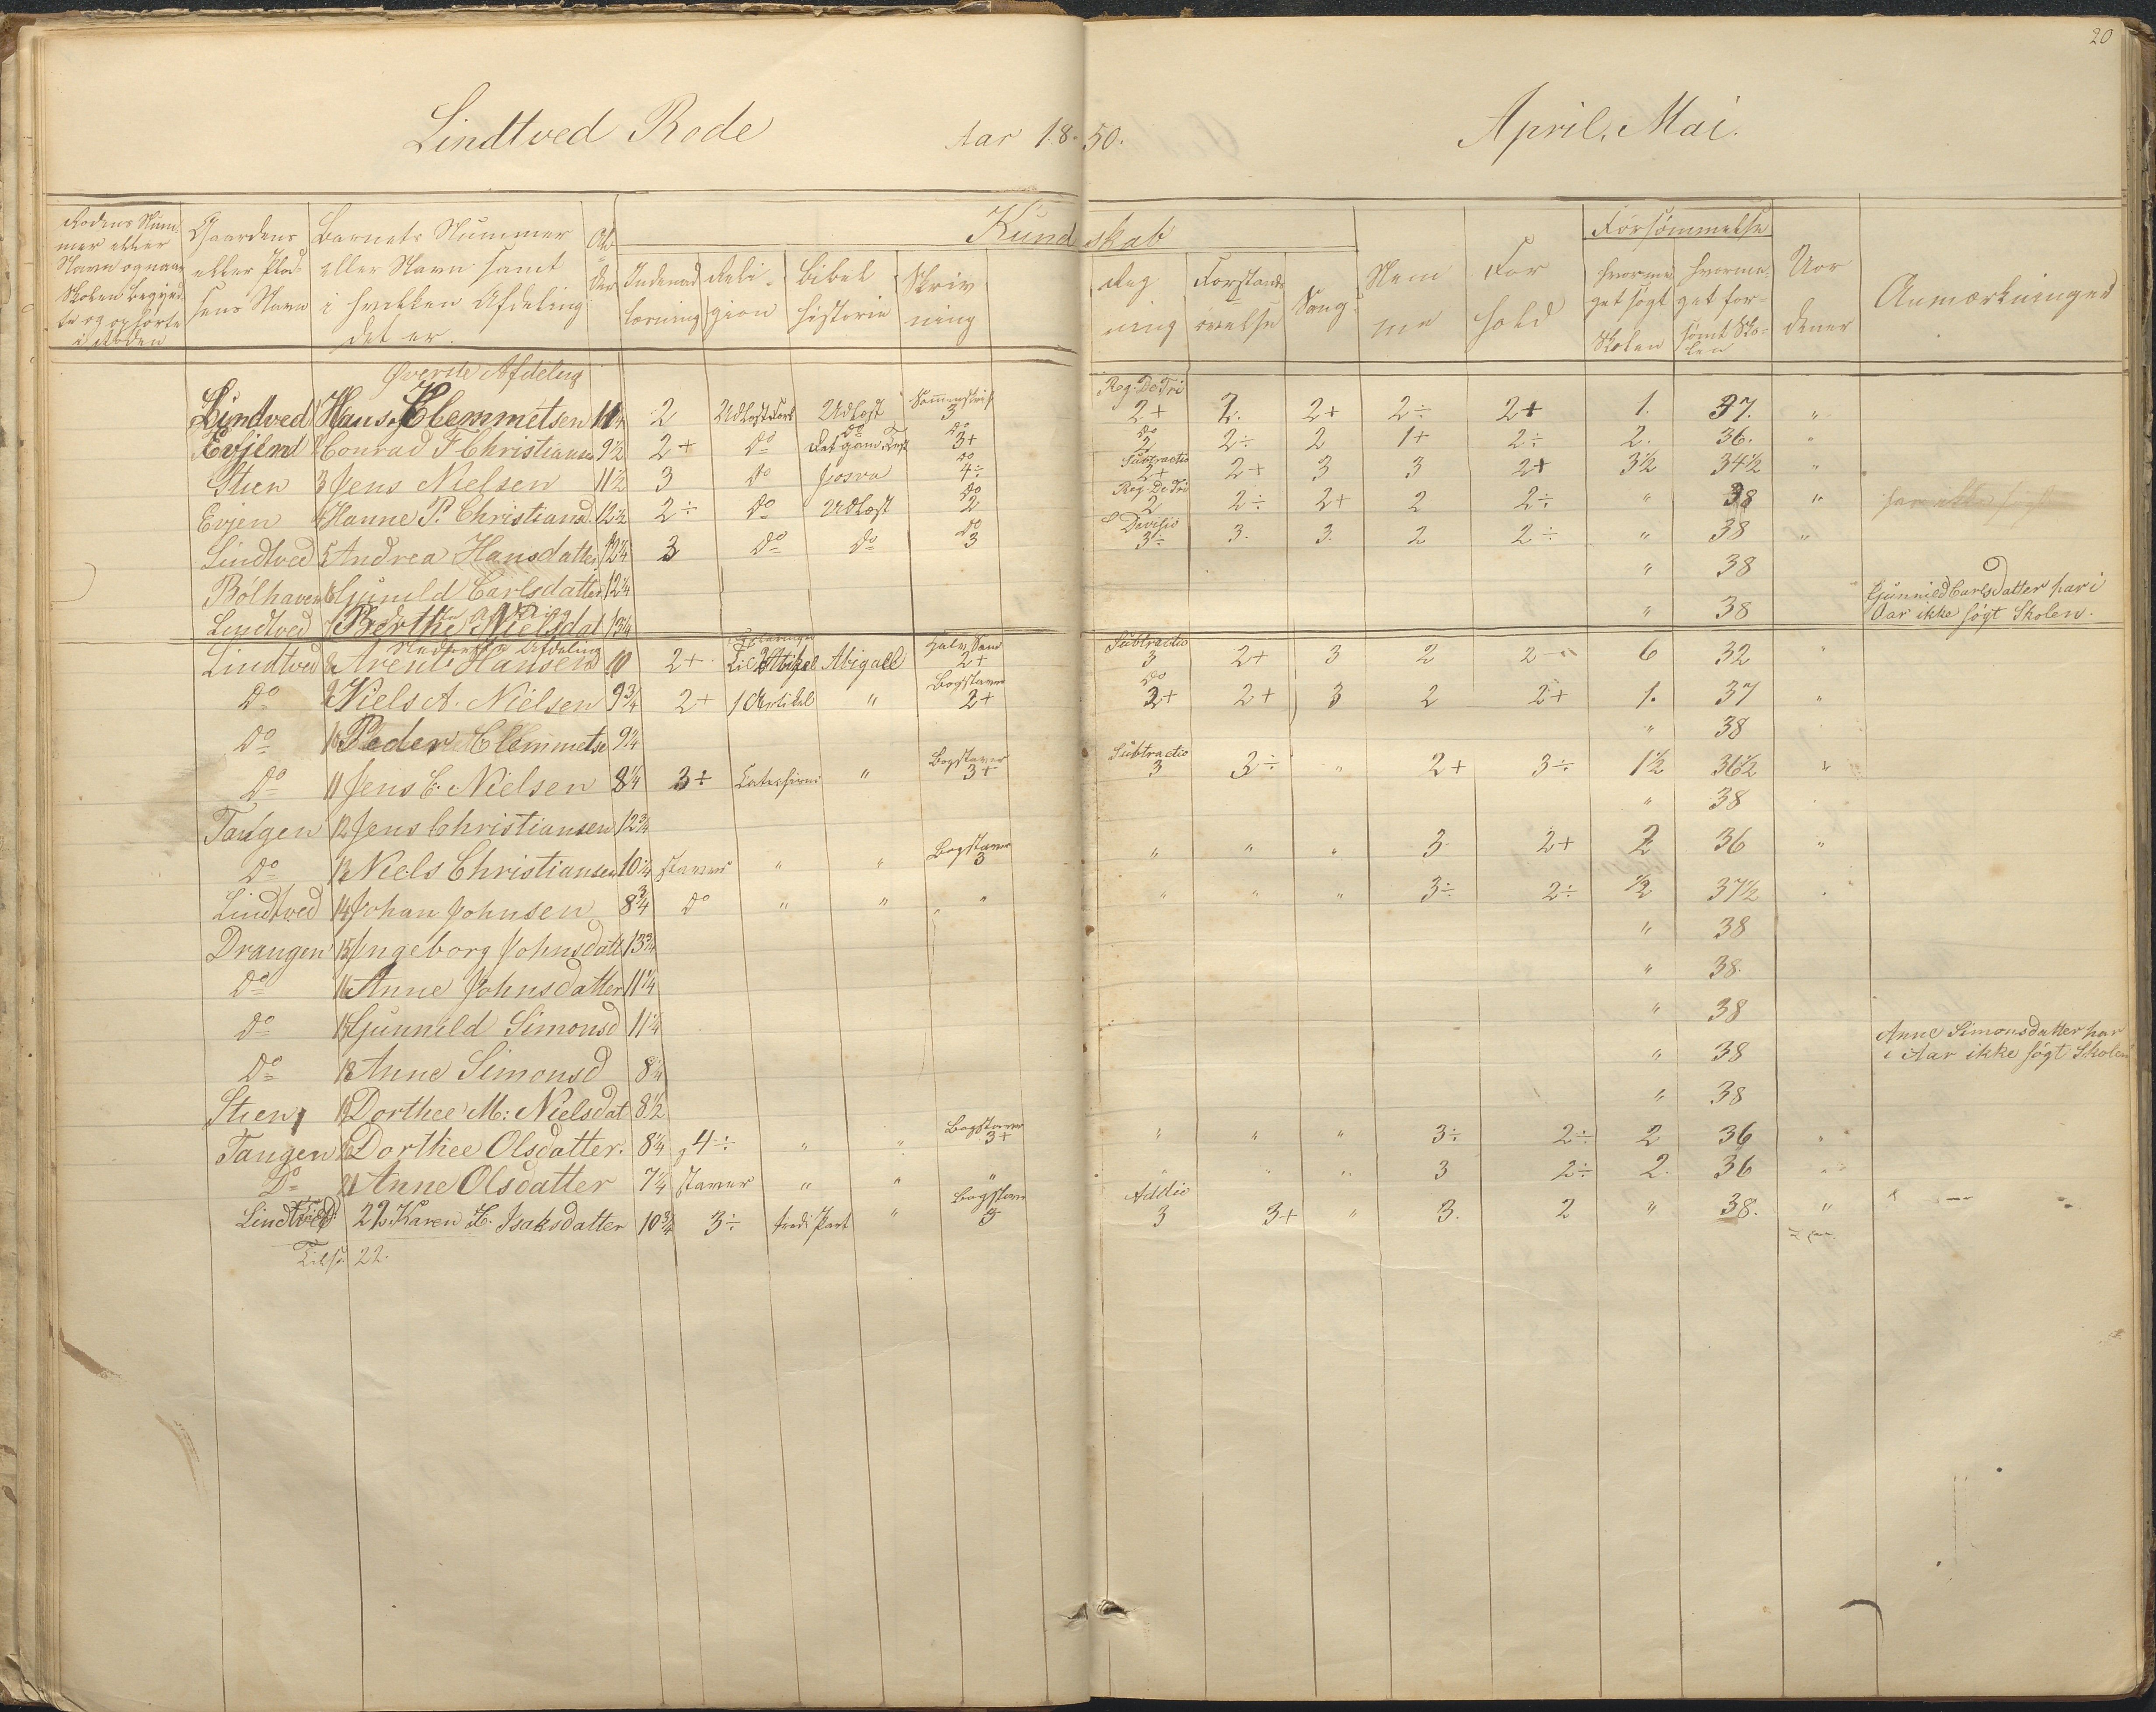 20
Lindtved Rode Aar 18-50. April, Mai.
Rodens Nummer eller Navn og naar Skolen begyndte og ophørte i Roden | Gaardens eller Pladsens Navn | Barnets Nummer eller Navn samt i hvilken Afdeling det er. | Alder | Kundskab | Forsømmelse
Indenadlæsning | Religion | Bibelhistorie | Skrivning | Regning | Forstandsøvelse | Sang | Nemme | Forhold | hvormeget søgt Skolen | hvormeget forsømt Skolen | Uordener | Anmærkninger
Øverste Afdeling
Lindtved 1 Hans Clemmetsen 11 2 Udlæst Udlæst 3 Reg. De Tri 2+ 2. 2+ 2÷ 2+ 1. 37. "
Evjen 2 Conrad F Christiansen 9½ 2+ Do Do 3+ Do 2 2÷ 2 1+ 2÷ 2. 36. "
Stien 3 Jens Nielsen 11½ 3 Do Josva Do 4÷ Subtractio 2+ 2+ 3 3 2+ 3½ 34½ "
Evjen 4 Hanne P. Christiansd. 12½ 2÷ Do Udlæst Do 2 Reg. De Tri 2 2÷ 2+ 2 2÷ " 38 "
Lindtved 5 Andrea Hansdatter 12¼ 3 Do Do Do 3 Devisio 3÷ 3. 3. 2 2÷ " 38 "
Bölhaven 6 Gunild Carlsdatter 12¼ " 38
Lindtved 7 Berthe Nielsdat 13¼ " 38 Gunnild Carlsdatter har i Aar ikke søgt Skolen.
Nederste Afdeling
Lindtved 8 Arent Hansen 10 2+ Abigael 2+ Subtractio 3 2+ 3 2 2 6 32 "
Do 9 Niels A. Nielsen 9¾ 2+ 1 Artikel " Bogstaver 2+ Do 2+ 2+ 3 2 2+ 1. 37 "
Do 10 Peder Clemmetse 9¼ " 38
Do 11 Jens C. Nielsen 8¼ 3÷ " Bogstaver 3+ Subtractio 3 3÷ " 2+ 3÷ 1½ 36½ "
Tangen 12 Jens Christiansen 12¾ " 38
Do 13 Niels Christiansen 10¼ staver " " Bogstaver 3 " " " 3 2+ 2 36 "
Lindtved 14 Johan Johnsen 8¾ Do " " " " " " 3÷ 2÷ ½ 37½
Drangen 15 Ingeborg Johnsdatt 13¾ " 38
Do 16 Anne Johnsdatter 11¼ " 38.
Do 17 Gunnild Simonsd 11¼ " 38
Do 18 Anne Simonsd 8¼ " 38 Anne Simonsdatter har i Aar ikke søgt Skolen
Stien 19 Dorthee M: Nielsdat 8½ " 38
Tangen 20 Dorthee Olsdatter. 8¼ 4÷ " " Bogstaver 3+ " " " 3÷ 2÷ 2 36 "
Do 21 Anne Olsdatter 7¼ staver " " " " " " 3 2÷ 2. 36
Lindtved 22. Karen K. Isaksdatter 10¾ 3÷ tredi Part " Bogstaver 3 Additio 3 3+ " 3. 2 " 38. "
Tils. 22.